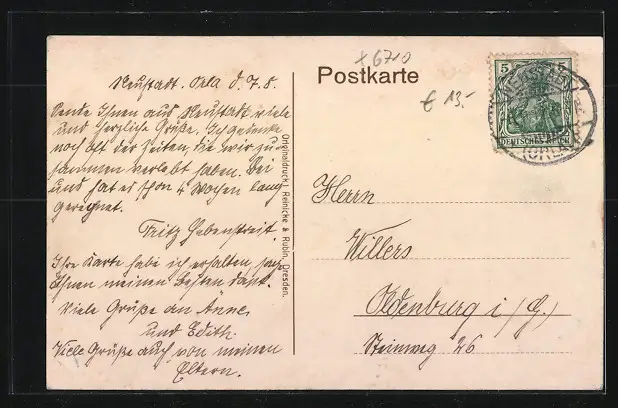 Neustadt. Orla d. 7. 8.
Sende Ihnen aus Neustadt viele
und herzliche Grüße. Ich gedenke
noch oft der Zeiten, die wir zu-
sammen verlebt haben. Bei
uns hat es schon 4 Wochen lang
geregnet.
Fritz Hebenstreit.
Ihre Karte habe ich erhalten, sage
Ihnen meinen besten Dank.
Viele Grüße an Anne
und Edith.
Viele Grüße auch von meinen
Eltern.
Originaldruck: Reinicke & Rubin, Dresden.
x 6710
Postkarte
€ 13.-
5 5
DEUTSCHES REICH
NEUSTADT
(ORLA)
Herrn
Willers
Oldenburg i/G.
Steinweg 26